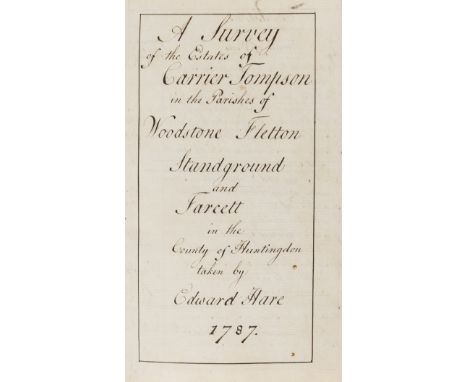 A Survey
of the Estates of
Carrier Tompson
in the Parishes of
Woodstone Fletton
Standground
and
Farcett
in the
County of Huntingdon
taken by
Edward Hare
1787.